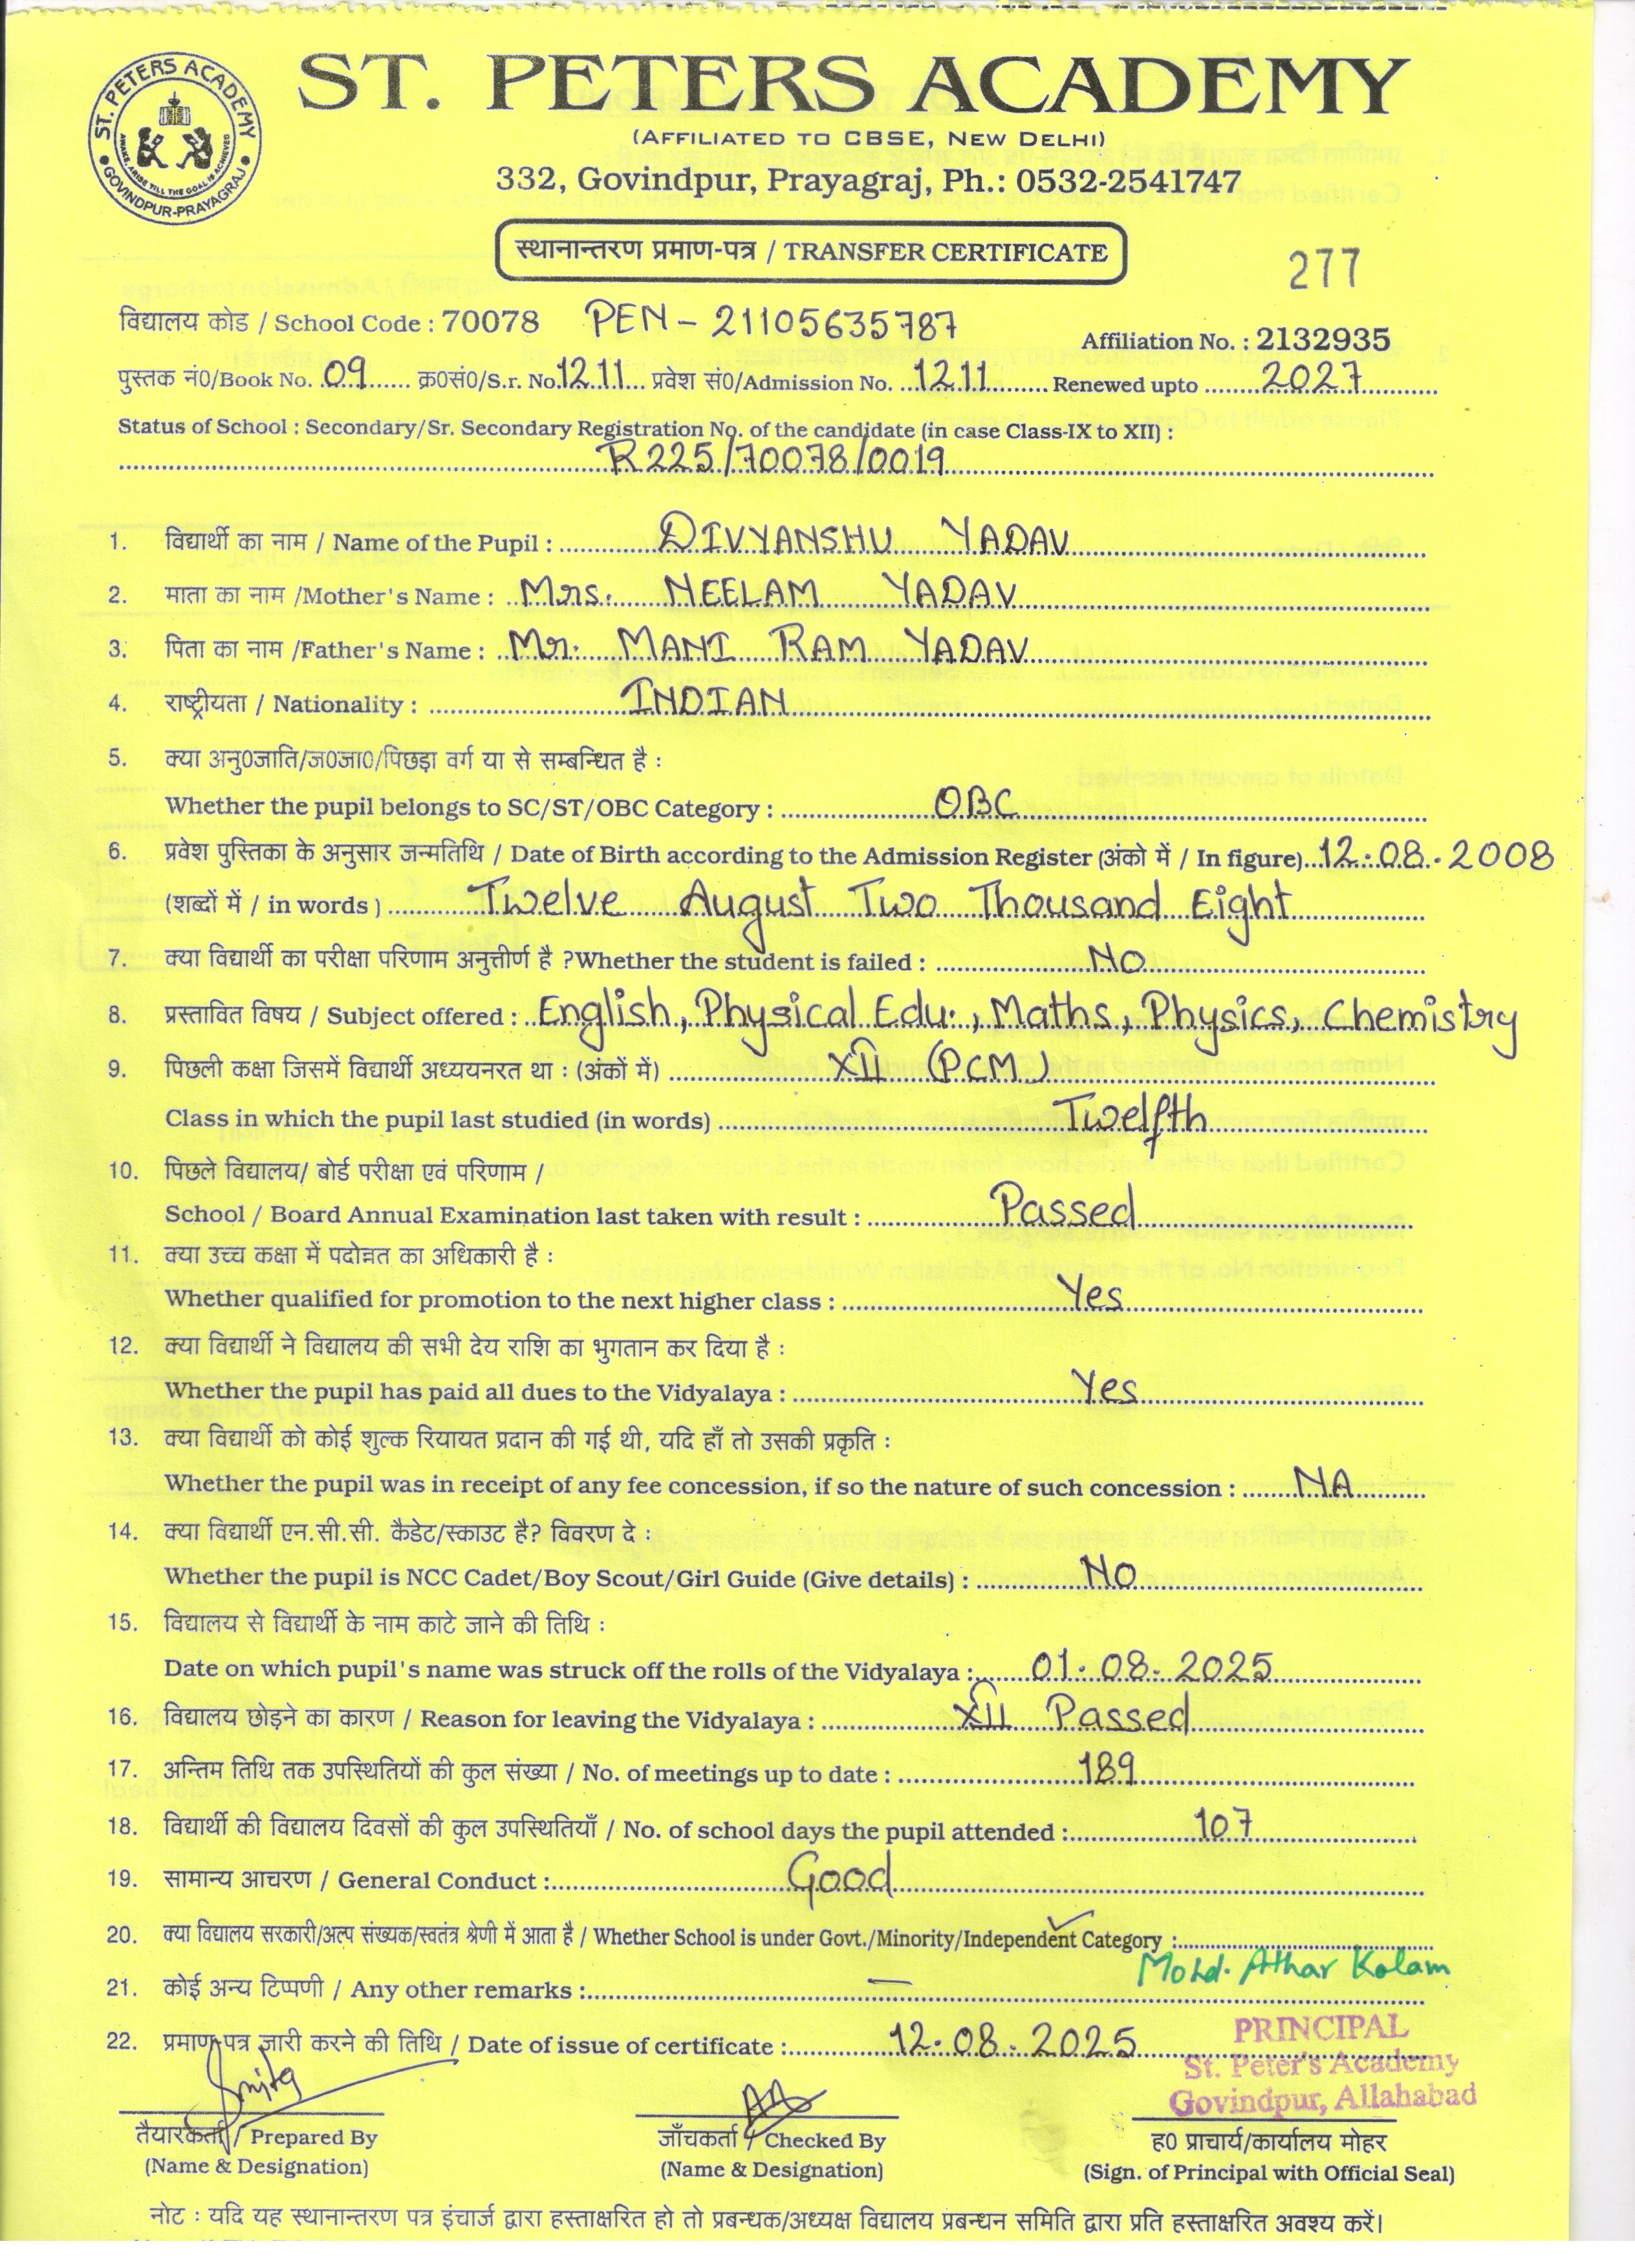 ST. PETERS ACADEMY
ST. PETERS ACADEMY
AWAKE, ARISE TILL THE GOAL IS ACHIEVED
GOVINDPUR-PRAYAGRAJ
(AFFILIATED TO CBSE, NEW DELHI)
332, Govindpur, Prayagraj, Ph.: 0532-2541747
स्थानान्तरण प्रमाण-पत्र / TRANSFER CERTIFICATE
277
विद्यालय कोड / School Code : 70078 PEN - 21105635787
Affiliation No. : 2132935
पुस्तक नं0/Book No. 09 क्र0सं0/S.r. No. 1211 प्रवेश सं0/Admission No. 1211 Renewed upto 2027
Status of School : Secondary/Sr. Secondary Registration No. of the candidate (in case Class-IX to XII) :
R225/70078/0019
1. विद्यार्थी का नाम / Name of the Pupil : DIVYANSHU YADAV
2. माता का नाम /Mother's Name : Mrs. NEELAM YADAV
3. पिता का नाम /Father's Name : Mr. MANI RAM YADAV
4. राष्ट्रीयता / Nationality : INDIAN
5. क्या अनु0जाति/ज0जा0/पिछड़ा वर्ग या से सम्बन्धित है :
Whether the pupil belongs to SC/ST/OBC Category : OBC
6. प्रवेश पुस्तिका के अनुसार जन्मतिथि / Date of Birth according to the Admission Register (अंको में / In figure) 12.08.2008
(शब्दों में / in words ) Twelve August Two Thousand Eight
7. क्या विद्यार्थी का परीक्षा परिणाम अनुत्तीर्ण है ?Whether the student is failed : NO
8. प्रस्तावित विषय / Subject offered : English, Physical Edu., Maths, Physics, Chemistry
9. पिछली कक्षा जिसमें विद्यार्थी अध्ययनरत था : (अंकों में) XII (PCM)
Class in which the pupil last studied (in words) Twelfth
10. पिछले विद्यालय/ बोर्ड परीक्षा एवं परिणाम /
School / Board Annual Examination last taken with result : Passed
11. क्या उच्च कक्षा में पदोन्नत का अधिकारी है :
Whether qualified for promotion to the next higher class : Yes
12. क्या विद्यार्थी ने विद्यालय की सभी देय राशि का भुगतान कर दिया है :
Whether the pupil has paid all dues to the Vidyalaya : Yes
13. क्या विद्यार्थी को कोई शुल्क रियायत प्रदान की गई थी, यदि हाँ तो उसकी प्रकृति :
Whether the pupil was in receipt of any fee concession, if so the nature of such concession : NA
14. क्या विद्यार्थी एन.सी.सी. कैडेट/स्काउट है? विवरण दे :
Whether the pupil is NCC Cadet/Boy Scout/Girl Guide (Give details) : NO
15. विद्यालय से विद्यार्थी के नाम काटे जाने की तिथि :
Date on which pupil's name was struck off the rolls of the Vidyalaya : 01.08.2025
16. विद्यालय छोड़ने का कारण / Reason for leaving the Vidyalaya : XII Passed
17. अन्तिम तिथि तक उपस्थितियों की कुल संख्या / No. of meetings up to date : 189
18. विद्यार्थी की विद्यालय दिवसों की कुल उपस्थितियाँ / No. of school days the pupil attended : 107
19. सामान्य आचरण / General Conduct : Good
20. क्या विद्यालय सरकारी/अल्प संख्यक/स्वतंत्र श्रेणी में आता है / Whether School is under Govt./Minority/Independent Category :
Mohd. Athar Kalam
21. कोई अन्य टिप्पणी / Any other remarks : —
22. प्रमाण-पत्र जारी करने की तिथि / Date of issue of certificate : 12.08.2025
PRINCIPAL
St. Peter's Academy
Govindpur, Allahabad
तैयारकर्ता / Prepared By
(Name & Designation)
जाँचकर्ता / Checked By
(Name & Designation)
ह0 प्राचार्य/कार्यालय मोहर
(Sign. of Principal with Official Seal)
नोट : यदि यह स्थानान्तरण पत्र इंचार्ज द्वारा हस्ताक्षरित हो तो प्रबन्धक/अध्यक्ष विद्यालय प्रबन्धन समिति द्वारा प्रति हस्ताक्षरित अवश्य करें।